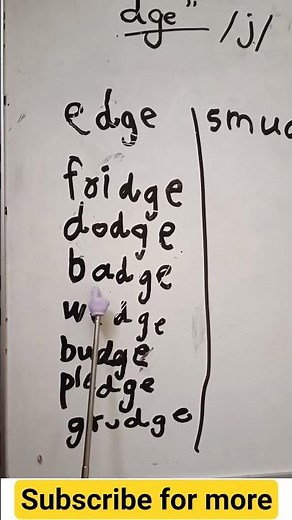 dge" /j/
edge
fridge
dodge
badge
wedge
budge
pledge
grudge
Subscribe for more